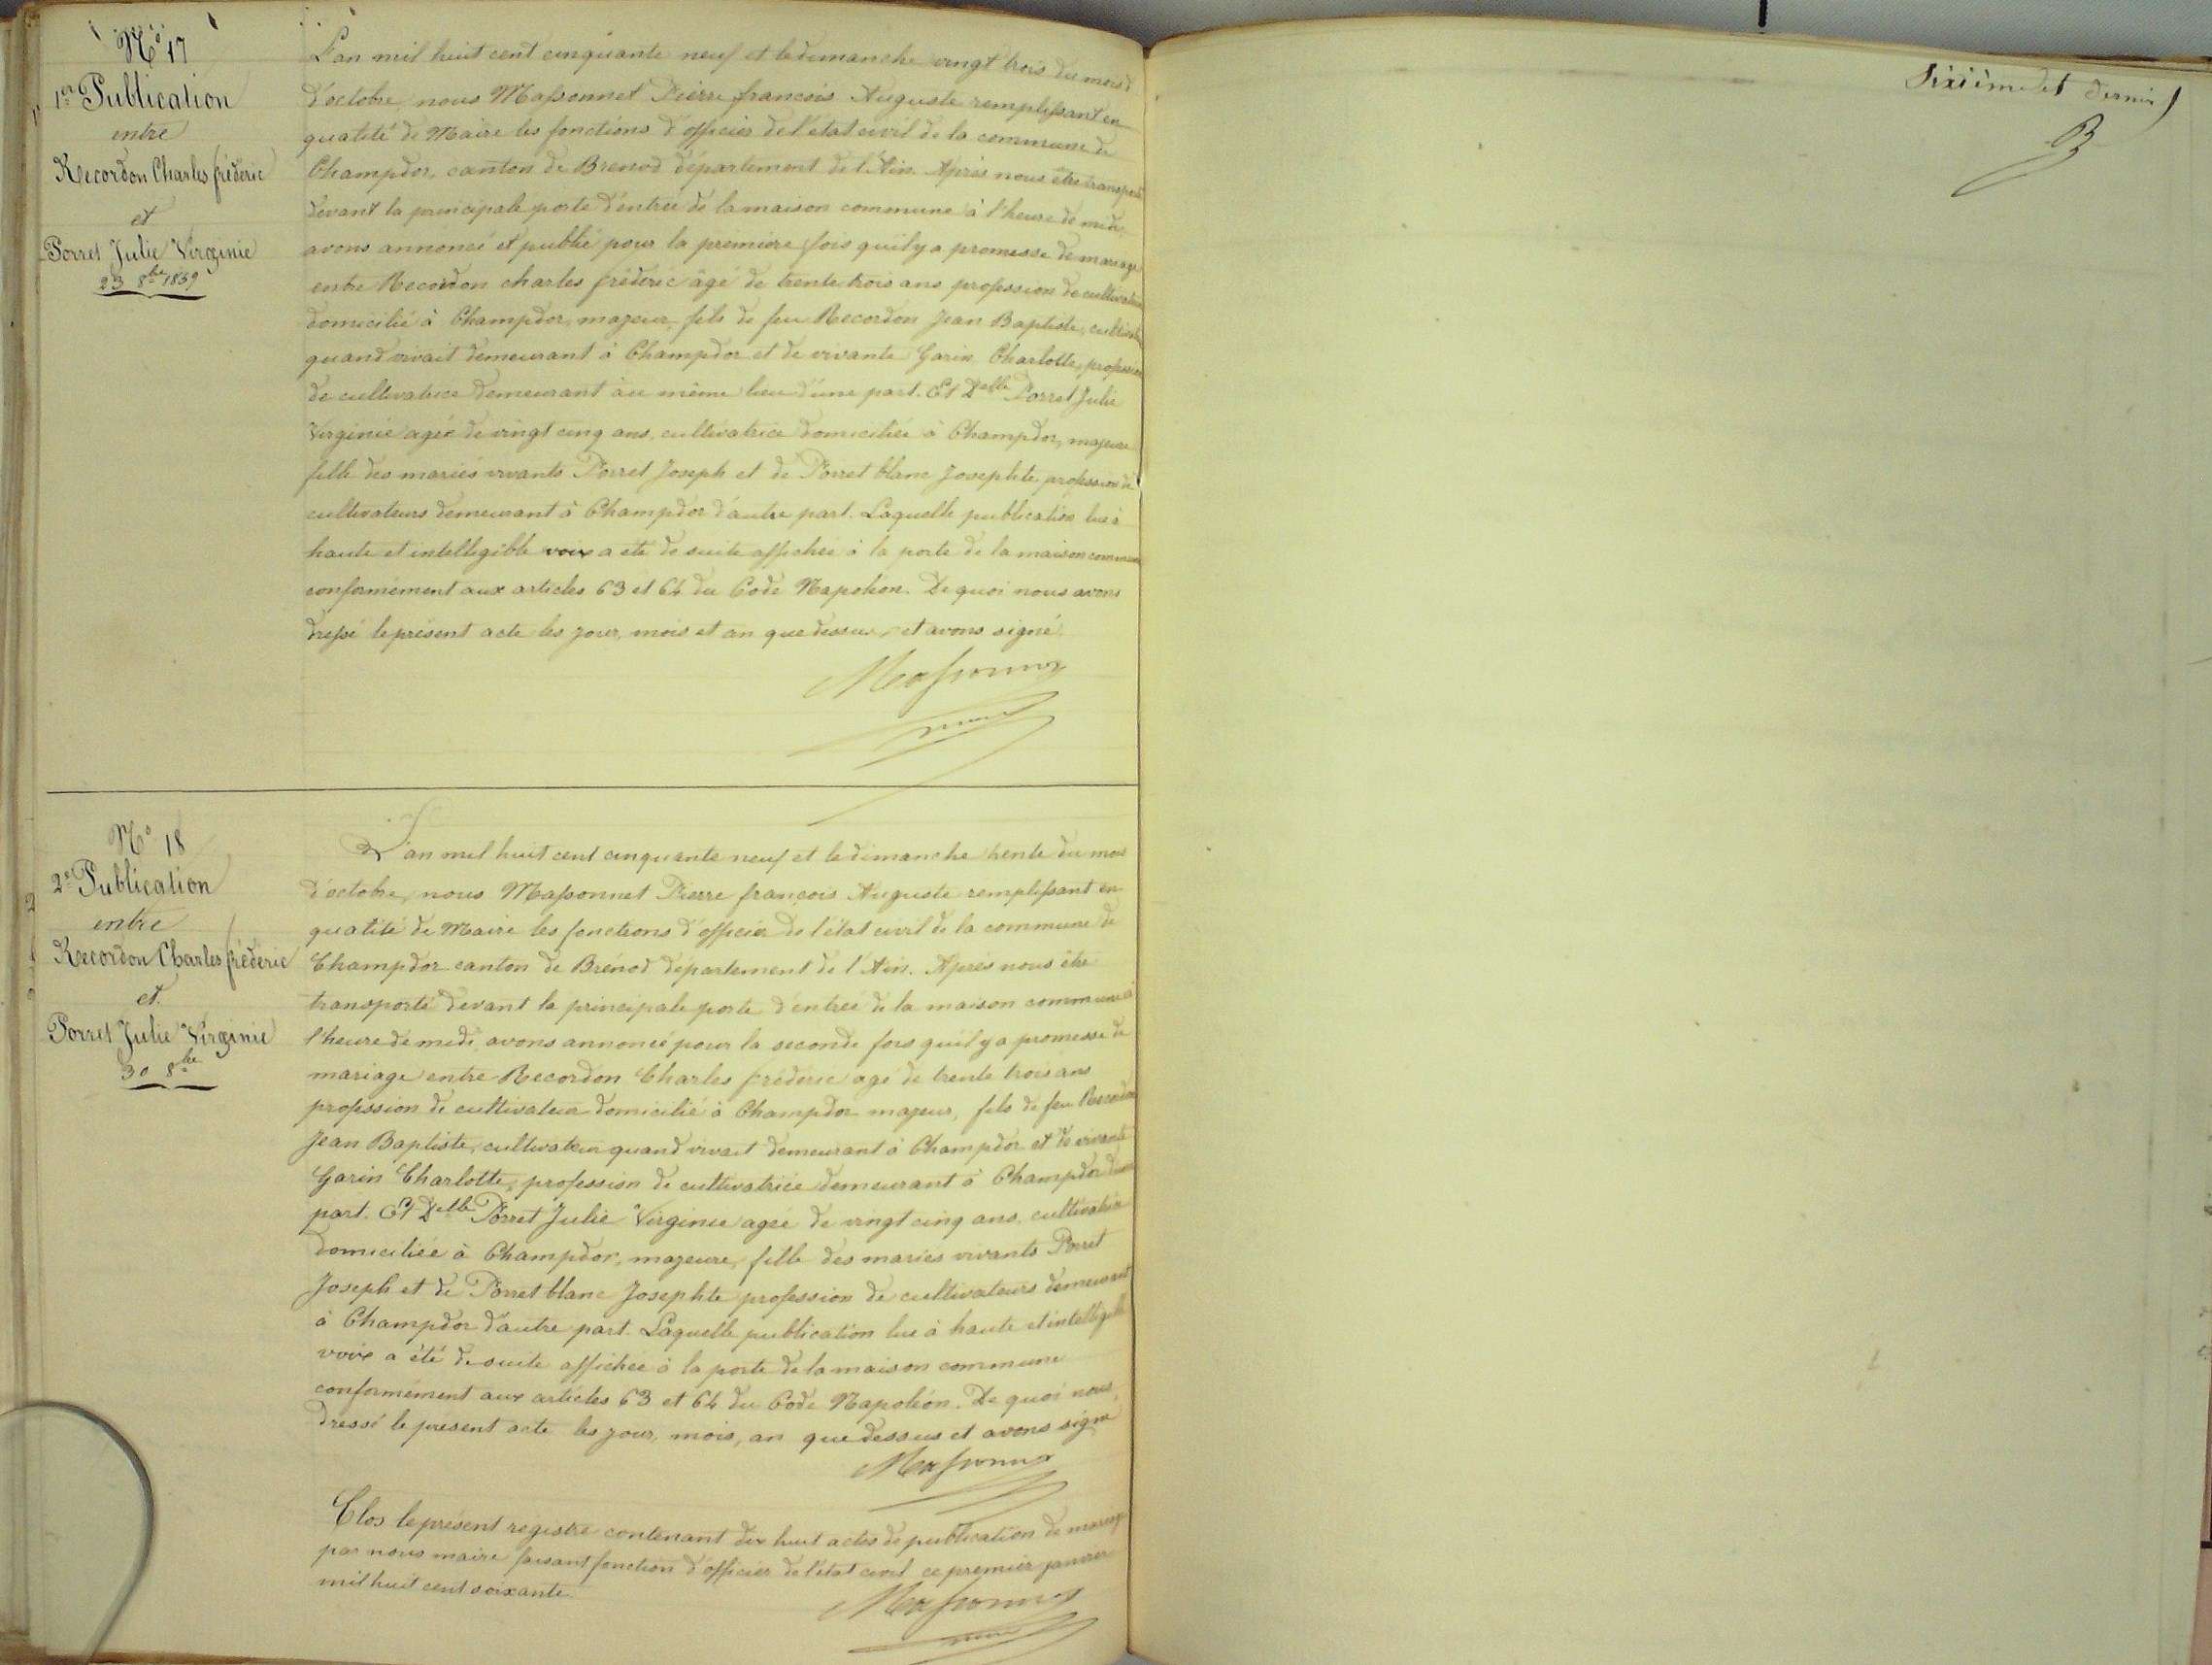 N° 17
1re Publication
entre
Recordon Charles fréderic
et
Porret Julie Virginie
23 8bre 1859
L'an mil huit cent cinquante neuf et le dimanche vingt trois du mois
d'octobre, nous Massonnet Pierre françois Auguste remplissant en
qualité de Maire les fonctions d'officier de l'état civil de la commune de
Champdor, canton de Brenod département de l'Ain. Après nous être transporté
devant la principale porte d'entrée de la maison commune à l'heure de midi,
avons annoncé et publié pour la première fois qu'il y a promesse de mariage
entre Recordon charles fréderic âgé de trente trois ans profession de cultivateur
domicilié à Champdor, majeur, fils de feu Recordon Jean Baptiste, cultivateur
quand vivait demeurant à Champdor et de vivante Garin Charlotte, profession
de cultivatrice demeurant au même lieu d'une part. Et Delle Porret Julie
Virginie agée de vingt cinq ans, cultivatrice domiciliée à Champdor, majeure
fille des mariés vivants Porret Joseph et de Porret blanc Josephte profession de
cultivateurs demeurant à Champdor d'autre part. Laquelle publication lue à
haute et intelligible voix a été de suite affichée à la porte de la maison commune
conformément aux articles 63 et 64 du Code Napoléon. De quoi nous avons
dressé le présent acte les jour, mois et an que dessus, et avons signé.
Massonnet
maire
N° 18
2e Publication
entre
Recordon Charles fréderic
et
Porret Julie Virginie
30 8bre
L'an mil huit cent cinquante neuf et le dimanche trente du mois
d'octobre, nous Massonnet Pierre françois Auguste remplissant en
qualité de Maire les fonctions d'officier de l'état civil de la commune de
Champdor canton de Brénod département de l'Ain. Après nous être
transporté devant la principale porte d'entrée de la maison commune à
l'heure de midi avons annoncé pour la seconde fois qu'il y a promesse de
mariage entre Recordon Charles fréderic agé de trente trois ans
profession de cultivateur domicilié à Champdor majeur, fils de feu Recordon
Jean Baptiste, cultivateur quand vivait demeurant à Champdor et de vivante
Garin Charlotte, profession de cultivatrice demeurant à Champdor d'une
part. Et Delle Porret Julie Virginie agée de vingt cinq ans, cultivatrice
domiciliée à Champdor, majeure, fille des mariés vivants Porret
Joseph et de Porret blanc Josephte profession de cultivateurs demeurant
à Champdor d'autre part. Laquelle publication lue à haute et intelligible
voix a été de suite affichée à la porte de la maison commune
conformément aux articles 63 et 64 du Code Napoléon. De quoi nous
dressé le présent acte les jour, mois, an que dessus et avons signé
Massonnet
Clos le présent registre contenant dix huit actes de publication de mariage
par nous maire faisant fonction d'officier de l'état civil ce premier janvier
mil huit cent soixante.
Massonnet
maire
Sixième et dernier